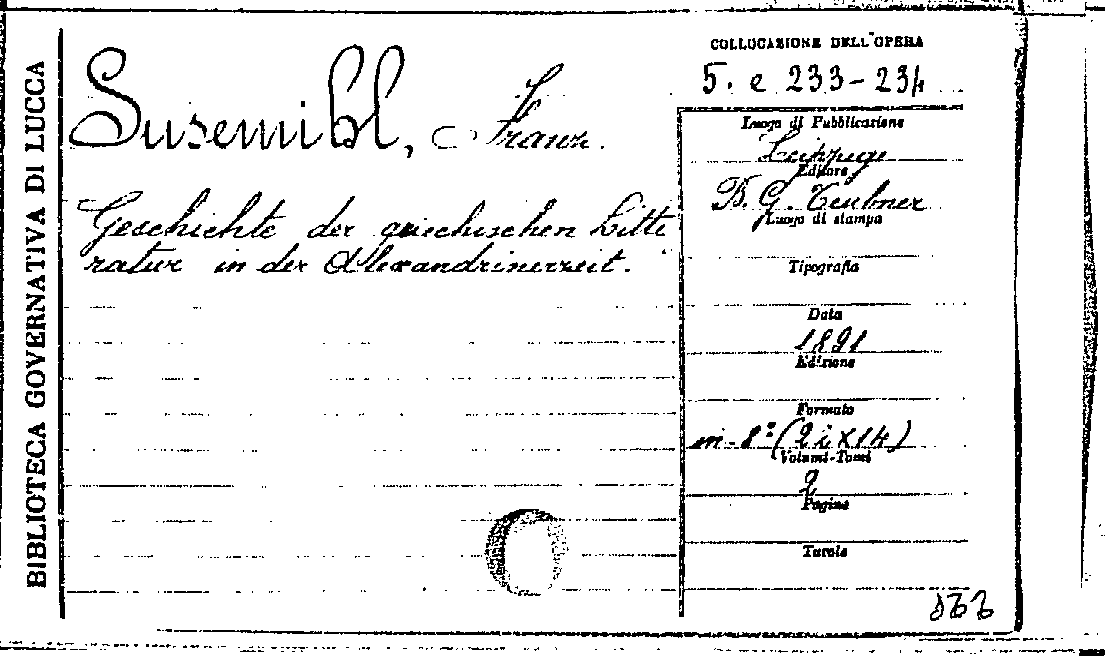 BIBLIOTECA GOVERNATIVA DI LUCCA
Susemihl, Franz.
Geschichte der griechischen Litte
ratur in der Alexandrinerzeit.
COLLOCAZIONE DELL'OPERA
5. e 233-234
Luogo di Pubblicazione
Leipzig
Editore
B. G. Teubner
Luogo di stampa
Tipografia
Data
1891
Edizione
Formato
in-8º (22x14)
Volumi-Tomi
2
Pagine
Tavole